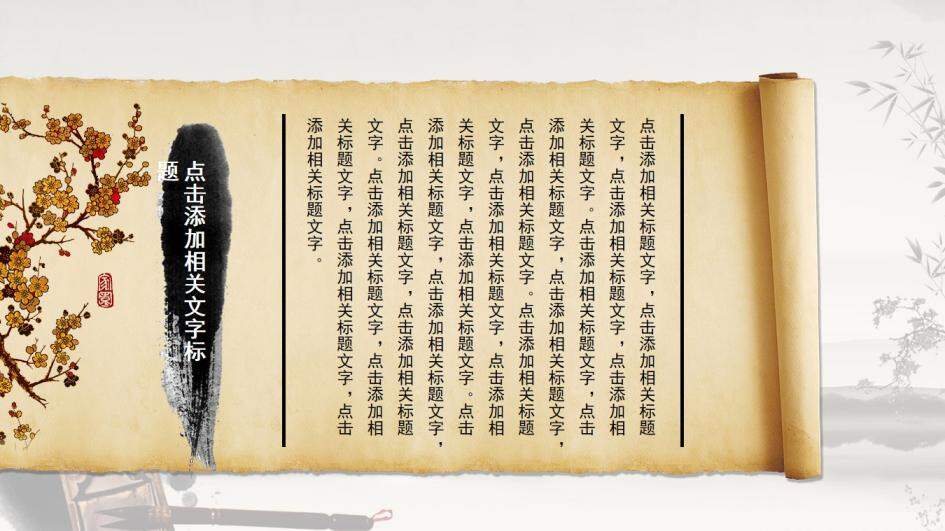 点击添加相关标题文字，点击添加相关标题
文字，点击添加相关标题文字，点击添加相
关标题文字。点击添加相关标题文字，点击
添加相关标题文字，点击添加相关标题文字，
点击添加相关标题文字。点击添加相关标题
文字，点击添加相关标题文字，点击添加相
关标题文字，点击添加相关标题文字。点击
添加相关标题文字，点击添加相关标题文字，
点击添加相关标题文字，点击添加相关标题
文字。点击添加相关标题文字，点击添加相
关标题文字，点击添加相关标题文字，点击
添加相关标题文字。
点击添加相关文字标
题